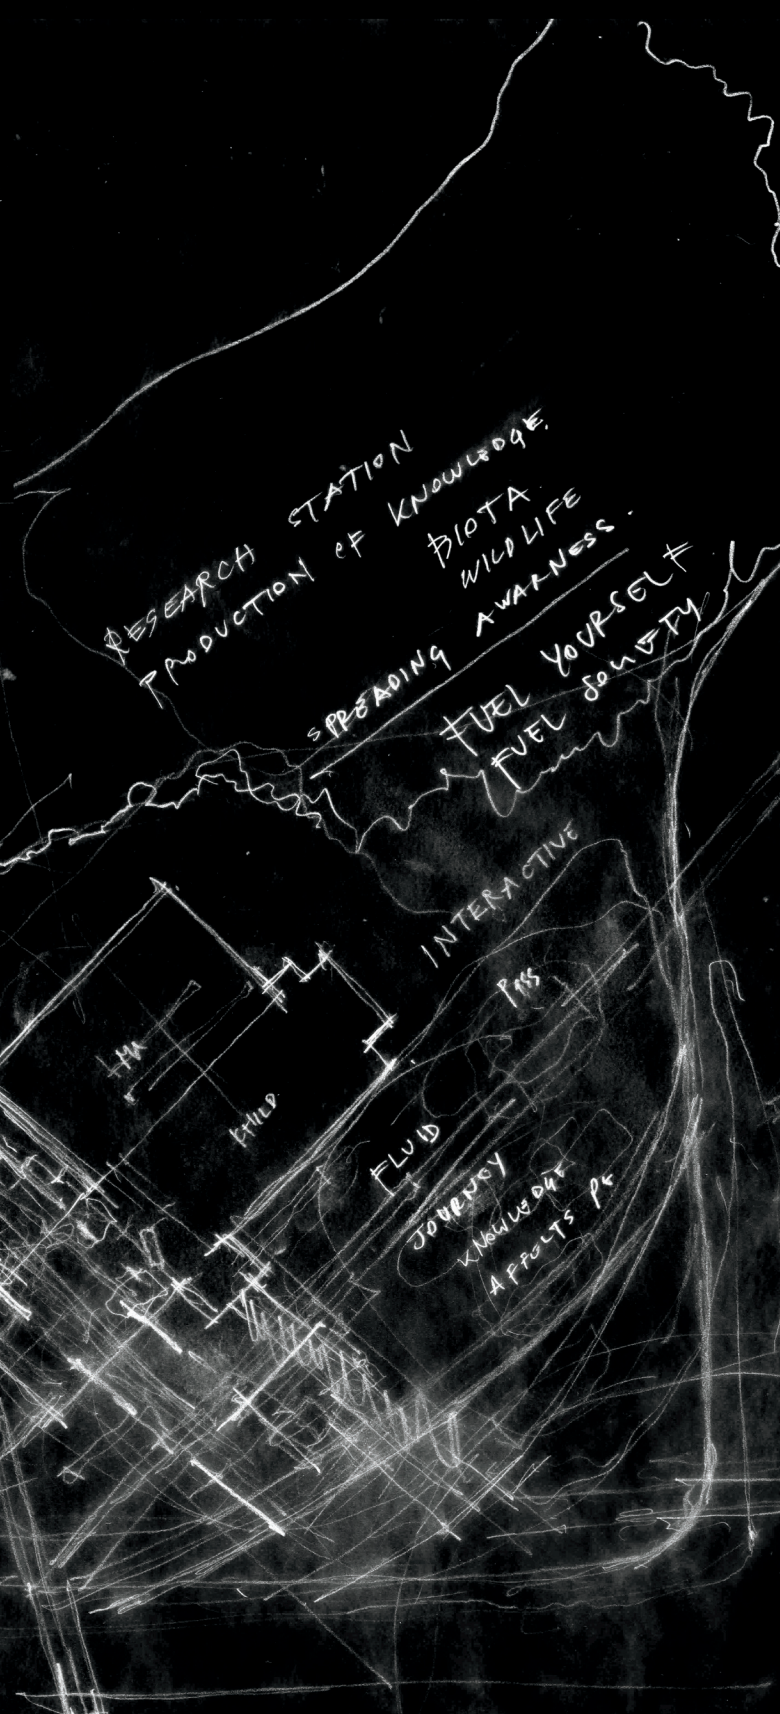 RESEARCH STATION
PRODUCTION OF KNOWLEDGE.
BIOTA
WILDLIFE
SPREADING AWARNESS.
FUEL YOURSELF
FUEL SOCIETY
INTERACTIVE
PASS
CHILD
FLUID
JOURNEY
KNOWLEDGE
AFFECTS